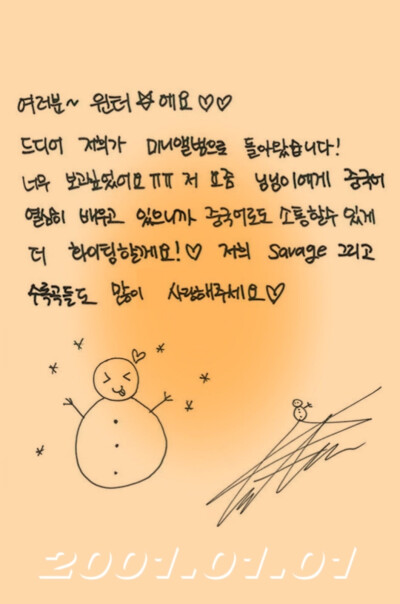 여러분~ 윈터☆에요♡♡
드디어 저희가 미니앨범으로 돌아왔습니다!
너무 보고싶었어요 ㅠㅠ 저 요즘 닝닝이에게 중국어
열심히 배우고 있으니까 중국어로도 소통할수 있게
더 화이팅할게요!♡ 저희 Savage 그리고
수록곡들도 많이 사랑해주세요♡
2001.01.01